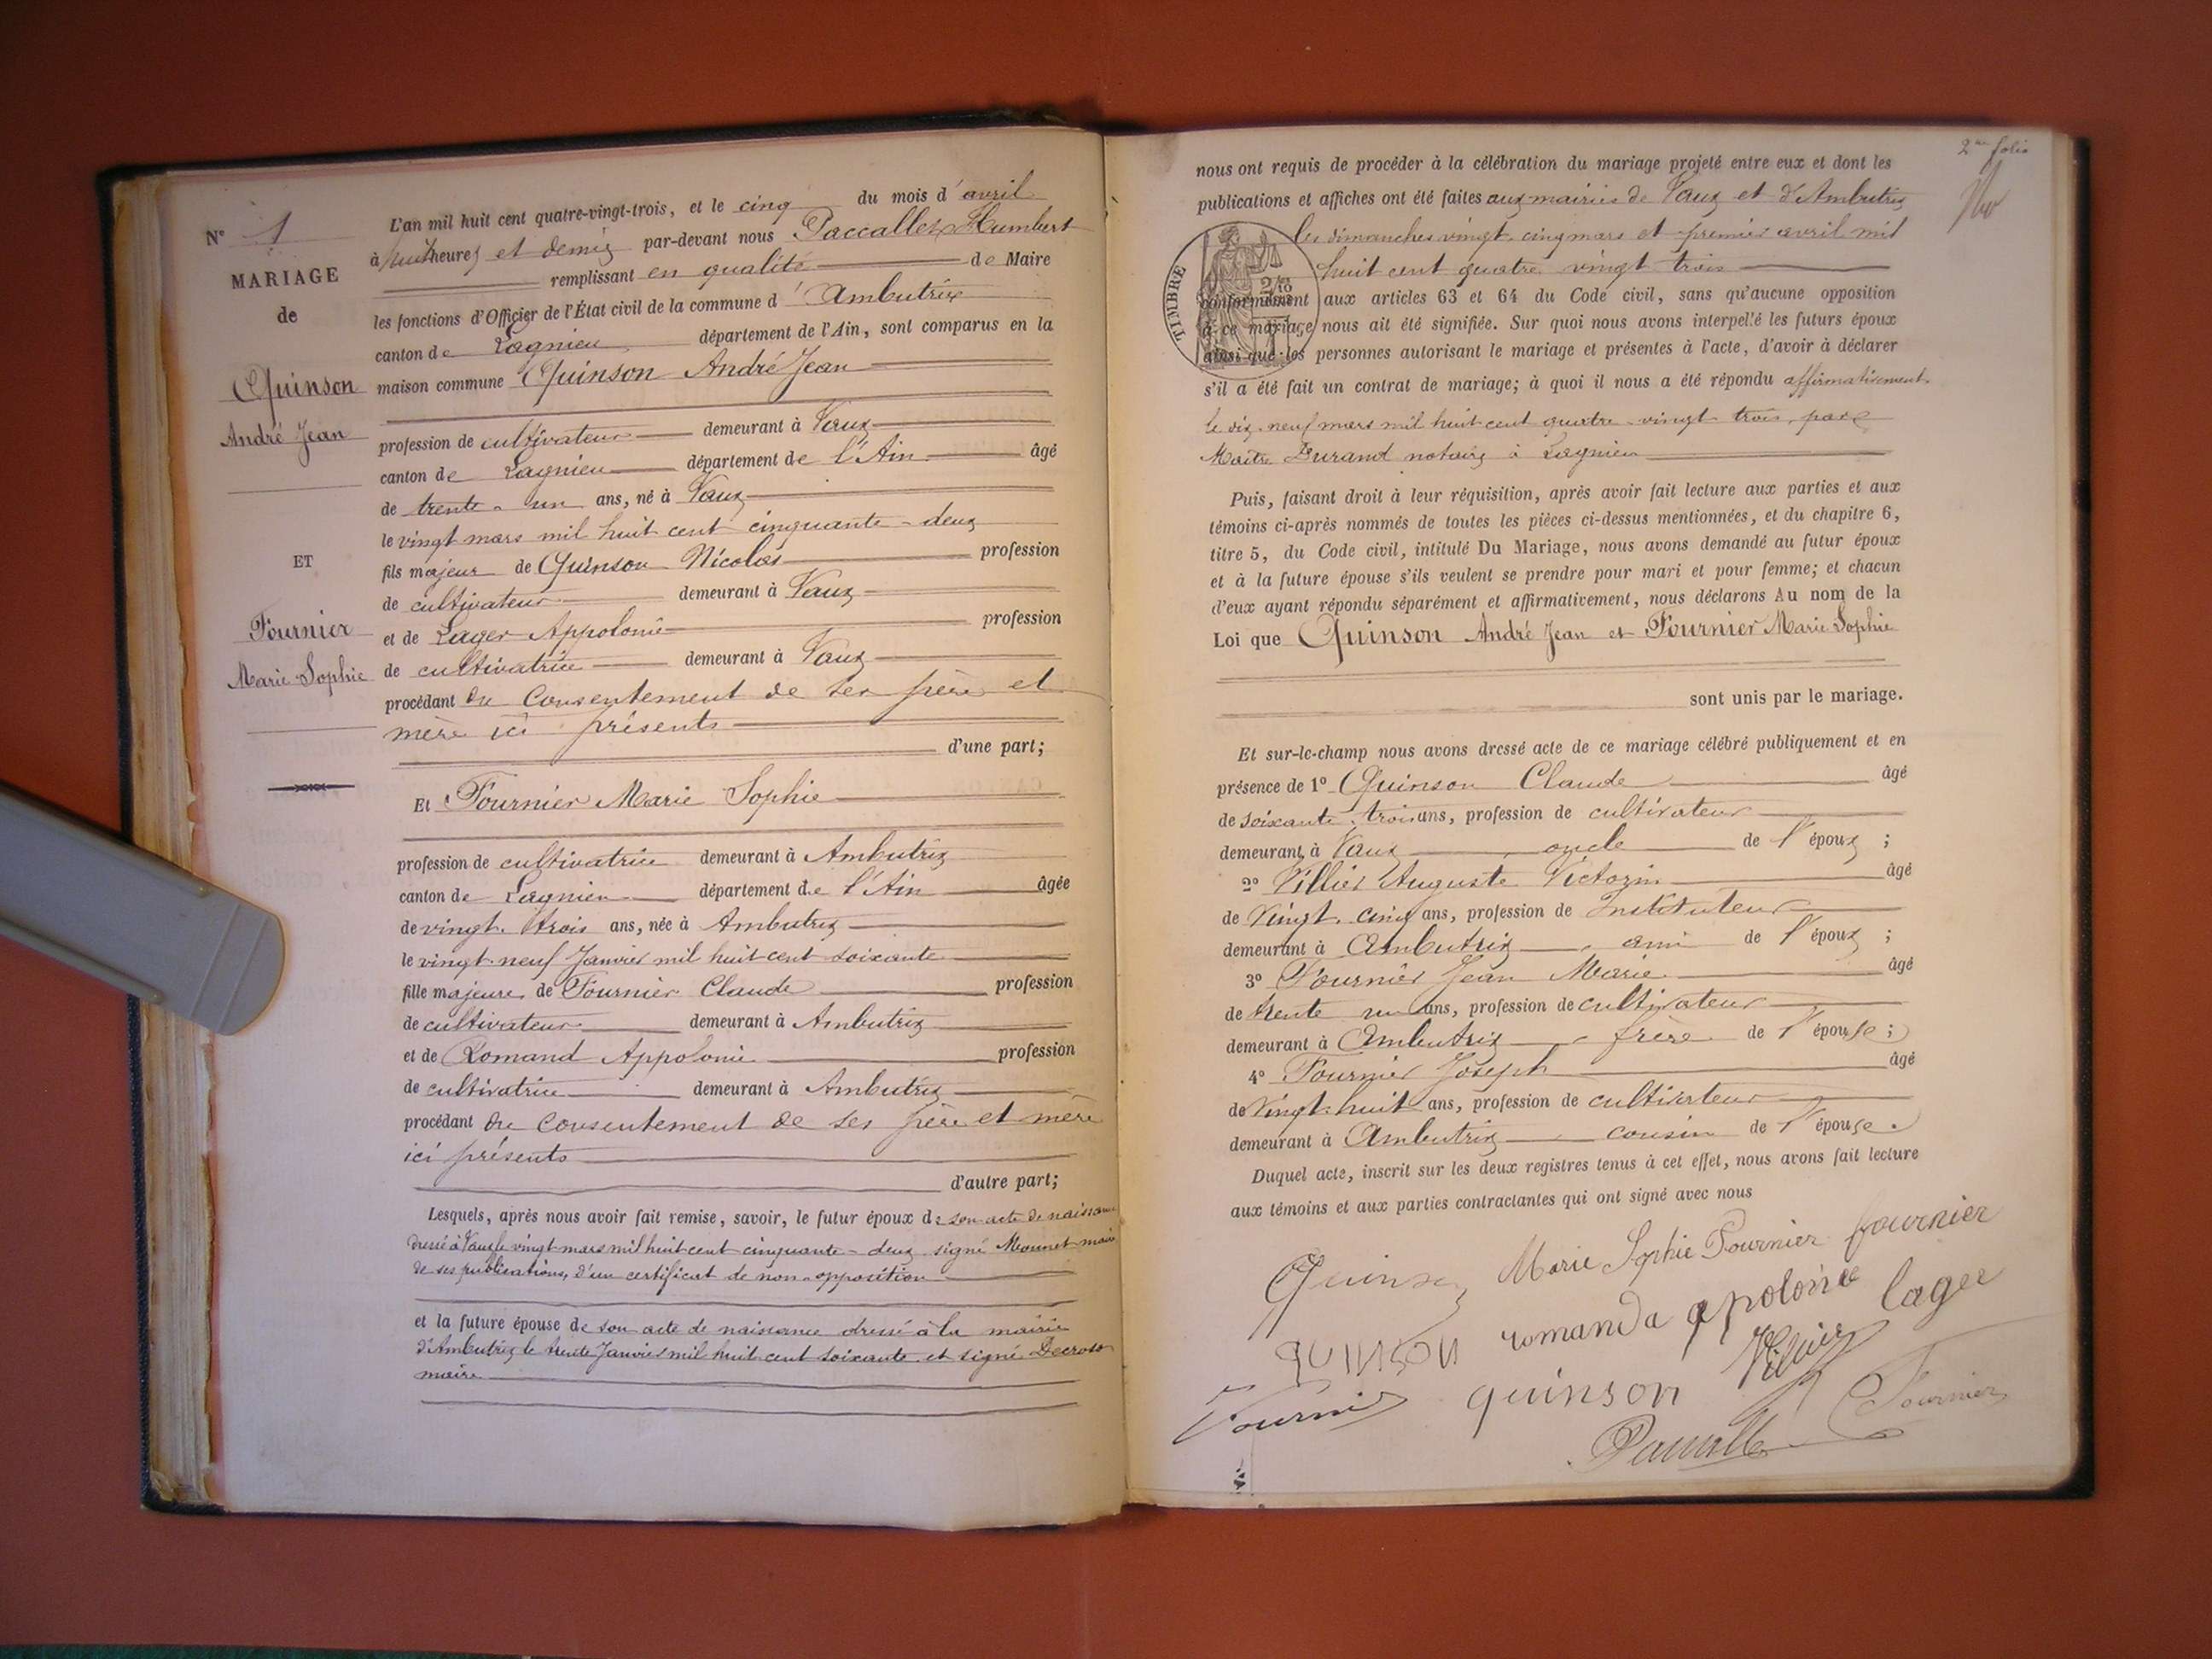 N° 1
MARIAGE
de
Quinson
André Jean
ET
Fournier
Marie Sophie
L'an mil huit cent quatre-vingt-trois, et le cinq du mois d'avril
à huit heures et demie par-devant nous Paccallet Humbert
remplissant en qualité de Maire
les fonctions d'Officier de l'État civil de la commune d'Ambutrix
canton de Lagnieu département de l'Ain, sont comparus en la
maison commune Quinson André Jean
profession de cultivateur demeurant à Vaux
canton de Lagnieu département de l'Ain âgé
de trente-un ans, né à Vaux
le vingt mars mil huit cent cinquante-deux
fils majeur de Quinson Nicolas profession
de cultivateur demeurant à Vaux
et de Lager Appolonie profession
de cultivatrice demeurant à Vaux
procédant du consentement de ses père et
mère ici présents
d'une part;
Et Fournier Marie Sophie
profession de cultivatrice demeurant à Ambutrix
canton de Lagnieu département de l'Ain âgée
de vingt-trois ans, née à Ambutrix
le vingt-neuf Janvier mil huit cent soixante
fille majeure de Fournier Claude profession
de cultivateur demeurant à Ambutrix
et de Romand Appolonie profession
de cultivatrice demeurant à Ambutrix
procédant du consentement de ses père et mère
ici présents
d'autre part;
Lesquels, après nous avoir fait remise, savoir, le futur époux de son acte de naissance
dressé à Vaux le vingt mars mil huit cent cinquante-deux signé Meunet maire
de ses publications, d'un certificat de non-opposition
et la future épouse de son acte de naissance dressé à la mairie
d'Ambutrix le trente Janvier mil huit cent soixante et signé Decroso
maire
2me folio
nous ont requis de procéder à la célébration du mariage projeté entre eux et dont les
publications et affiches ont été faites aux mairies de Vaux et d'Ambutrix
les dimanches vingt-cinq mars et premier avril mil
huit cent quatre vingt trois
TIMBRE
conformément aux articles 63 et 64 du Code civil, sans qu'aucune opposition
à ce mariage nous ait été signifiée. Sur quoi nous avons interpellé les futurs époux
ainsi que les personnes autorisant le mariage et présentes à l'acte, d'avoir à déclarer
s'il a été fait un contrat de mariage; à quoi il nous a été répondu affirmativement
le dix-neuf mars mil huit cent quatre-vingt trois, par
Maître Durand notaire à Lagnieu
Puis, faisant droit à leur réquisition, après avoir fait lecture aux parties et aux
témoins ci-après nommés de toutes les pièces ci-dessus mentionnées, et du chapitre 6,
titre 5, du Code civil, intitulé Du Mariage, nous avons demandé au futur époux
et à la future épouse s'ils veulent se prendre pour mari et pour femme; et chacun
d'eux ayant répondu séparément et affirmativement, nous déclarons Au nom de la
Loi que Quinson André Jean et Fournier Marie Sophie
sont unis par le mariage.
Et sur-le-champ nous avons dressé acte de ce mariage célébré publiquement et en
présence de 1° Quinson Claude âgé
de soixante-trois ans, profession de cultivateur
demeurant à Vaux oncle de l'époux ;
2° Villier Auguste Victorin âgé
de Vingt-cinq ans, profession de Instituteur
demeurant à Ambutrix ami de l'époux ;
3° Fournier Jean Marie âgé
de trente un ans, profession de cultivateur
demeurant à Ambutrix frère de l'épouse ;
4° Fournier Joseph âgé
de Vingt-huit ans, profession de cultivateur
demeurant à Ambutrix cousin de l'épouse.
Duquel acte, inscrit sur les deux registres tenus à cet effet, nous avons fait lecture
aux témoins et aux parties contractantes qui ont signé avec nous
Quinson Marie Sophie Fournier fournier
quinson romanda apolonie lager
Fournier quinson Villier Fournier
Paccallet